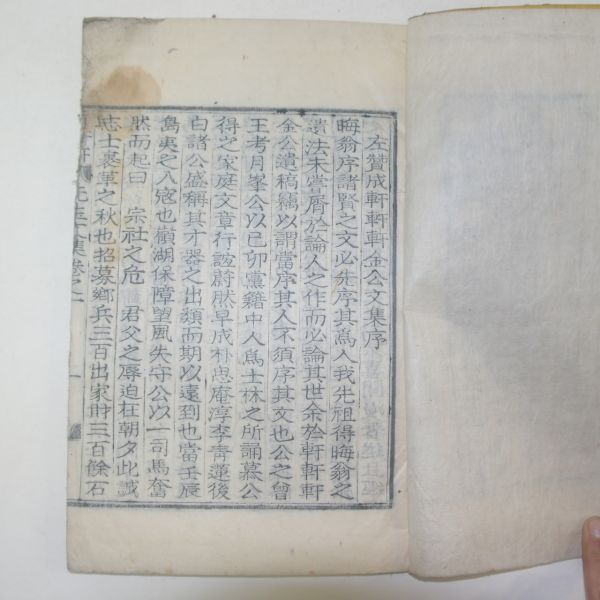 左贊成軒軒軒金公文集序
晦翁序諸賢之文必先序其爲人我先祖得晦翁之
遺法未嘗屑於論人之作而必論其世余於軒軒軒
金公遺稿竊以謂當序其人不須序其文也公之曾
王考月峯公以己卯黨籍中人爲士林之所誦慕公
得之家庭文章行誼蔚然早成朴思庵淳李靑蓮後
白諸公盛稱其才器之出類而期以遠到也當壬辰
島夷之入寇也嶺湖保障望風失守公以一司馬奮
然而起曰 宗社之危 君父之辱迫在朝夕此誠
志士裹革之秋也招募鄕兵三百出家財三百餘石
軒 先生文集卷之一
一